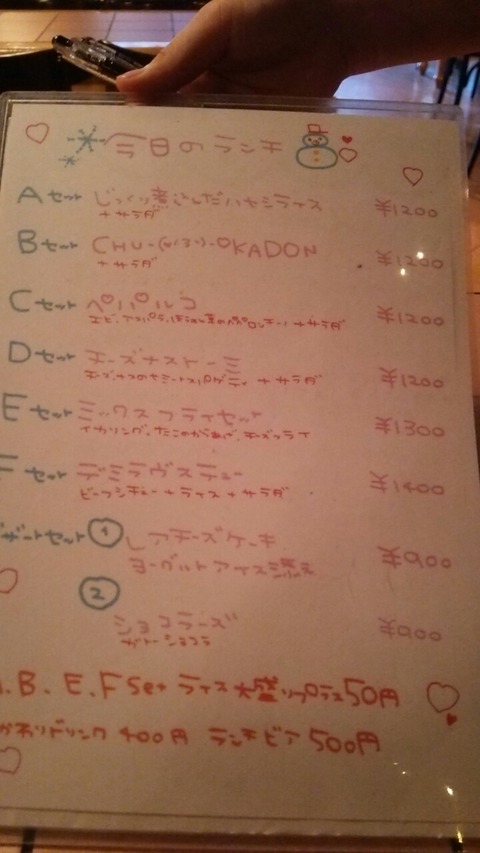 今日のランチ
Aセット じっくり煮込んだハヤシライス ¥1200
+サラダ
Bセット CHU-OKADON ¥1200
+サラダ
Cセット ペパルコ ¥1200
エビ、の +サラダ
Dセット チーズナストーミ ¥1200
チーズナスのミートスパゲティ +サラダ
Eセット ミックスフライセット ¥1300
イカリング、たこのからあげ、チーズフライ
セット デミラヴステュー ¥1400
ビーフシチュー+ライス+サラダ
ザートセット ① レアチーズケーキ ¥900
ヨーグルトアイス添え
②
ショコラーズ ¥900
ガトーショコラ
.B.E.F Set ライス大盛りプラス50円
わりドリンク 400円 ランチビア 500円